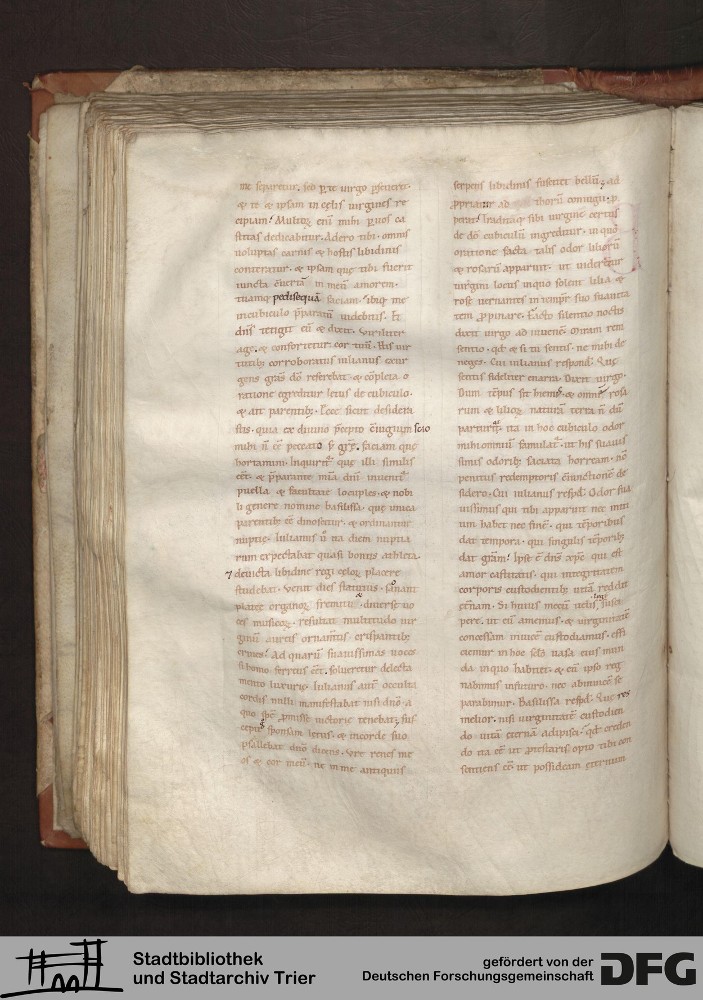 me separetur. sed p te uirgo pseueret.
& te & ipsam in celis uirgines re
cipiam. Multoꝝ eni mihi p uos ca
stitas dedicabitur. Adero tibi. omnis
uoluptas carnis & hostis libidinis
conteratur. & ipsam que tibi fuerit
iuncta c̄uertā in meū amorem.
tuamq; pedisequā faciam. ibiq; me
in cubiculo p̄paratū uidebitis. Et
dn̄s tetigit eū & dixit. Viriliter
age. & confortetur cor tuū. His uir
tutib; corroboratus iulianus exur
gens gr̄as dō referebat. & cōpleta o
ratione egreditur letus de cubiculo.
& ait parentib;. Ecce sicut desidera
stis. quia ex diuino p̄cepto c̄iugium scio
mihi n̄ c̄e peccatō faciam que
hortamini. Inquirit̄ que illi similis
eēt. & p̄parante mīa dn̄i inuenit̄
puella & facultate locuples. & nobi
li genere nomine basilissa. que unica
parentib; c̄e dinoscitur. & ordinantur
nuptie. Iulianus ū ita diem nuptia
rum expectabat quasi bonus athleta.
⁊ deuicta libidine regi celoꝝ placere
studebat. Venit dies statutus. sonant
platee organoꝝ fremitu. & diuerse uo
ces musicoꝝ. resultat multitudo uir
ginū aureis ornam̄tis crispantib;
crines. Ad quarū suauissimas uoces
si homo ferreus eēt. solueretur delecta
mento luxurie. Iulianus aut̄ occulta
cordis nulli manifestabat nisi dn̄o a
quo spē p̄misse uictorie tenebat. sus
cepit sponsam letus. & in corde suo
psallebat dn̄o dicens. Vre renes me
os & cor meū. ut in me antiquus
serpens libidinis suscitet bellū. ad
ppriatur ad thorū coniugii. p
perat. Iradiatq; sibi uirginē certus
de dō cubiculū ingreditur. in quo
oratione facta talis odor lilioꝝ
& rosarū apparuit. ut uideretur
uirgini locus in quo solent lilia &
rose uernantes in tempr̄ suo suauita
tem p̄pinare. Facto silentio noctis
dixit uirgo ad iuuenē. Miram rem
sentio. qd̄ & si tu sentis. ne mihi de
neges. Cui iulianus respond̄. Que
sentis fideliter enarra. Dixit uirgo.
Dum tēpus sit hiemis. & omniū rosa
rum & lilioꝝ naturā terra n̄ dū
parturit̄. ita in hoc cubiculo odor
mihi omniū famulat̄. ut his suauis
simis odorib; saciata horream. n̄
penitus redemptoris c̄iunctionē de
sidero. Cui iulianus resp̄d. Odor sua
uissimus qui tibi apparuit nec initi
um habet nec finē. qui tēporibus
dat tempora. qui singulis tēporib;
dat grām. Ipse ē dn̄s xp̄c. qui est
amor castitatis. qui integritatem
corporis custodientib; uitā reddit
et̄nam. Si huius mecū uelis suscι
pere. ut eū amemus. & uirginitatē
concessam inuicē custodiamus. effi
ciemur in hoc sc̄lo uasa eius mun
da in quo habitet. & eū ipso reg
nabimus in futuro. nec ab inuicē se
parabimur. Basilissa resp̄d. Que res
melior. nisi uirginitatē custodien
do uitā et̄nam adipisci. qd̄ creden
do ita c̄e ut p̄testaris opto tibi con
sentiens c̄e. ut possideam eternum
Stadtbibliothek
und Stadtarchiv Trier
gefördert von der
Deutschen Forschungsgemeinschaft
DFG